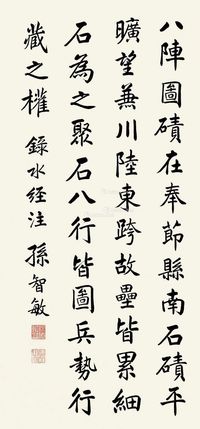 八陣圖磧在奉節縣南石磧平
曠望兼川陸東跨故壘皆累細
石為之聚石八行皆圖兵勢行
藏之權 錄水經注 孫智敏